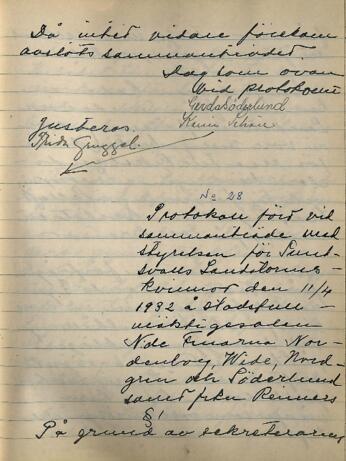 Då intet vidare förekom
avslöts sammanträdet.
Dag som ovan
Vid protokollet
Gerda Söderlund
Justeras.
Frida
№ 28
Protokoll förd vid
sammanträde med
styrelsen för Sund-
svalls Landstorms-
kvinnor den 11/4
1932 å stadsfull-
mäktigesalen
Nde Fruarna Nor-
denborg, Wide, Nord-
gren och Söderlund
samt frkn Renners
§ 1
På grund av sekreterarens